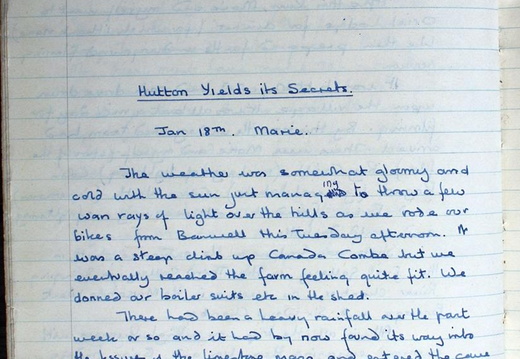 Hutton Yields its Secrets.
Jan 18TH. Marie.
The weather was somewhat gloomy and
cold with the sun just managing to throw a few
wan rays of light over the hills as we rode our
bikes from Banwell this Tuesday afternoon. It
was a steep climb up Canada Combe but we
eventually reached the farm feeling quite fit. We
donned our boiler suits etc in the shed.
There had been a heavy rainfall over the past
week or so and it had by now found its way into
the fissures of the limestone mass and entered the cave